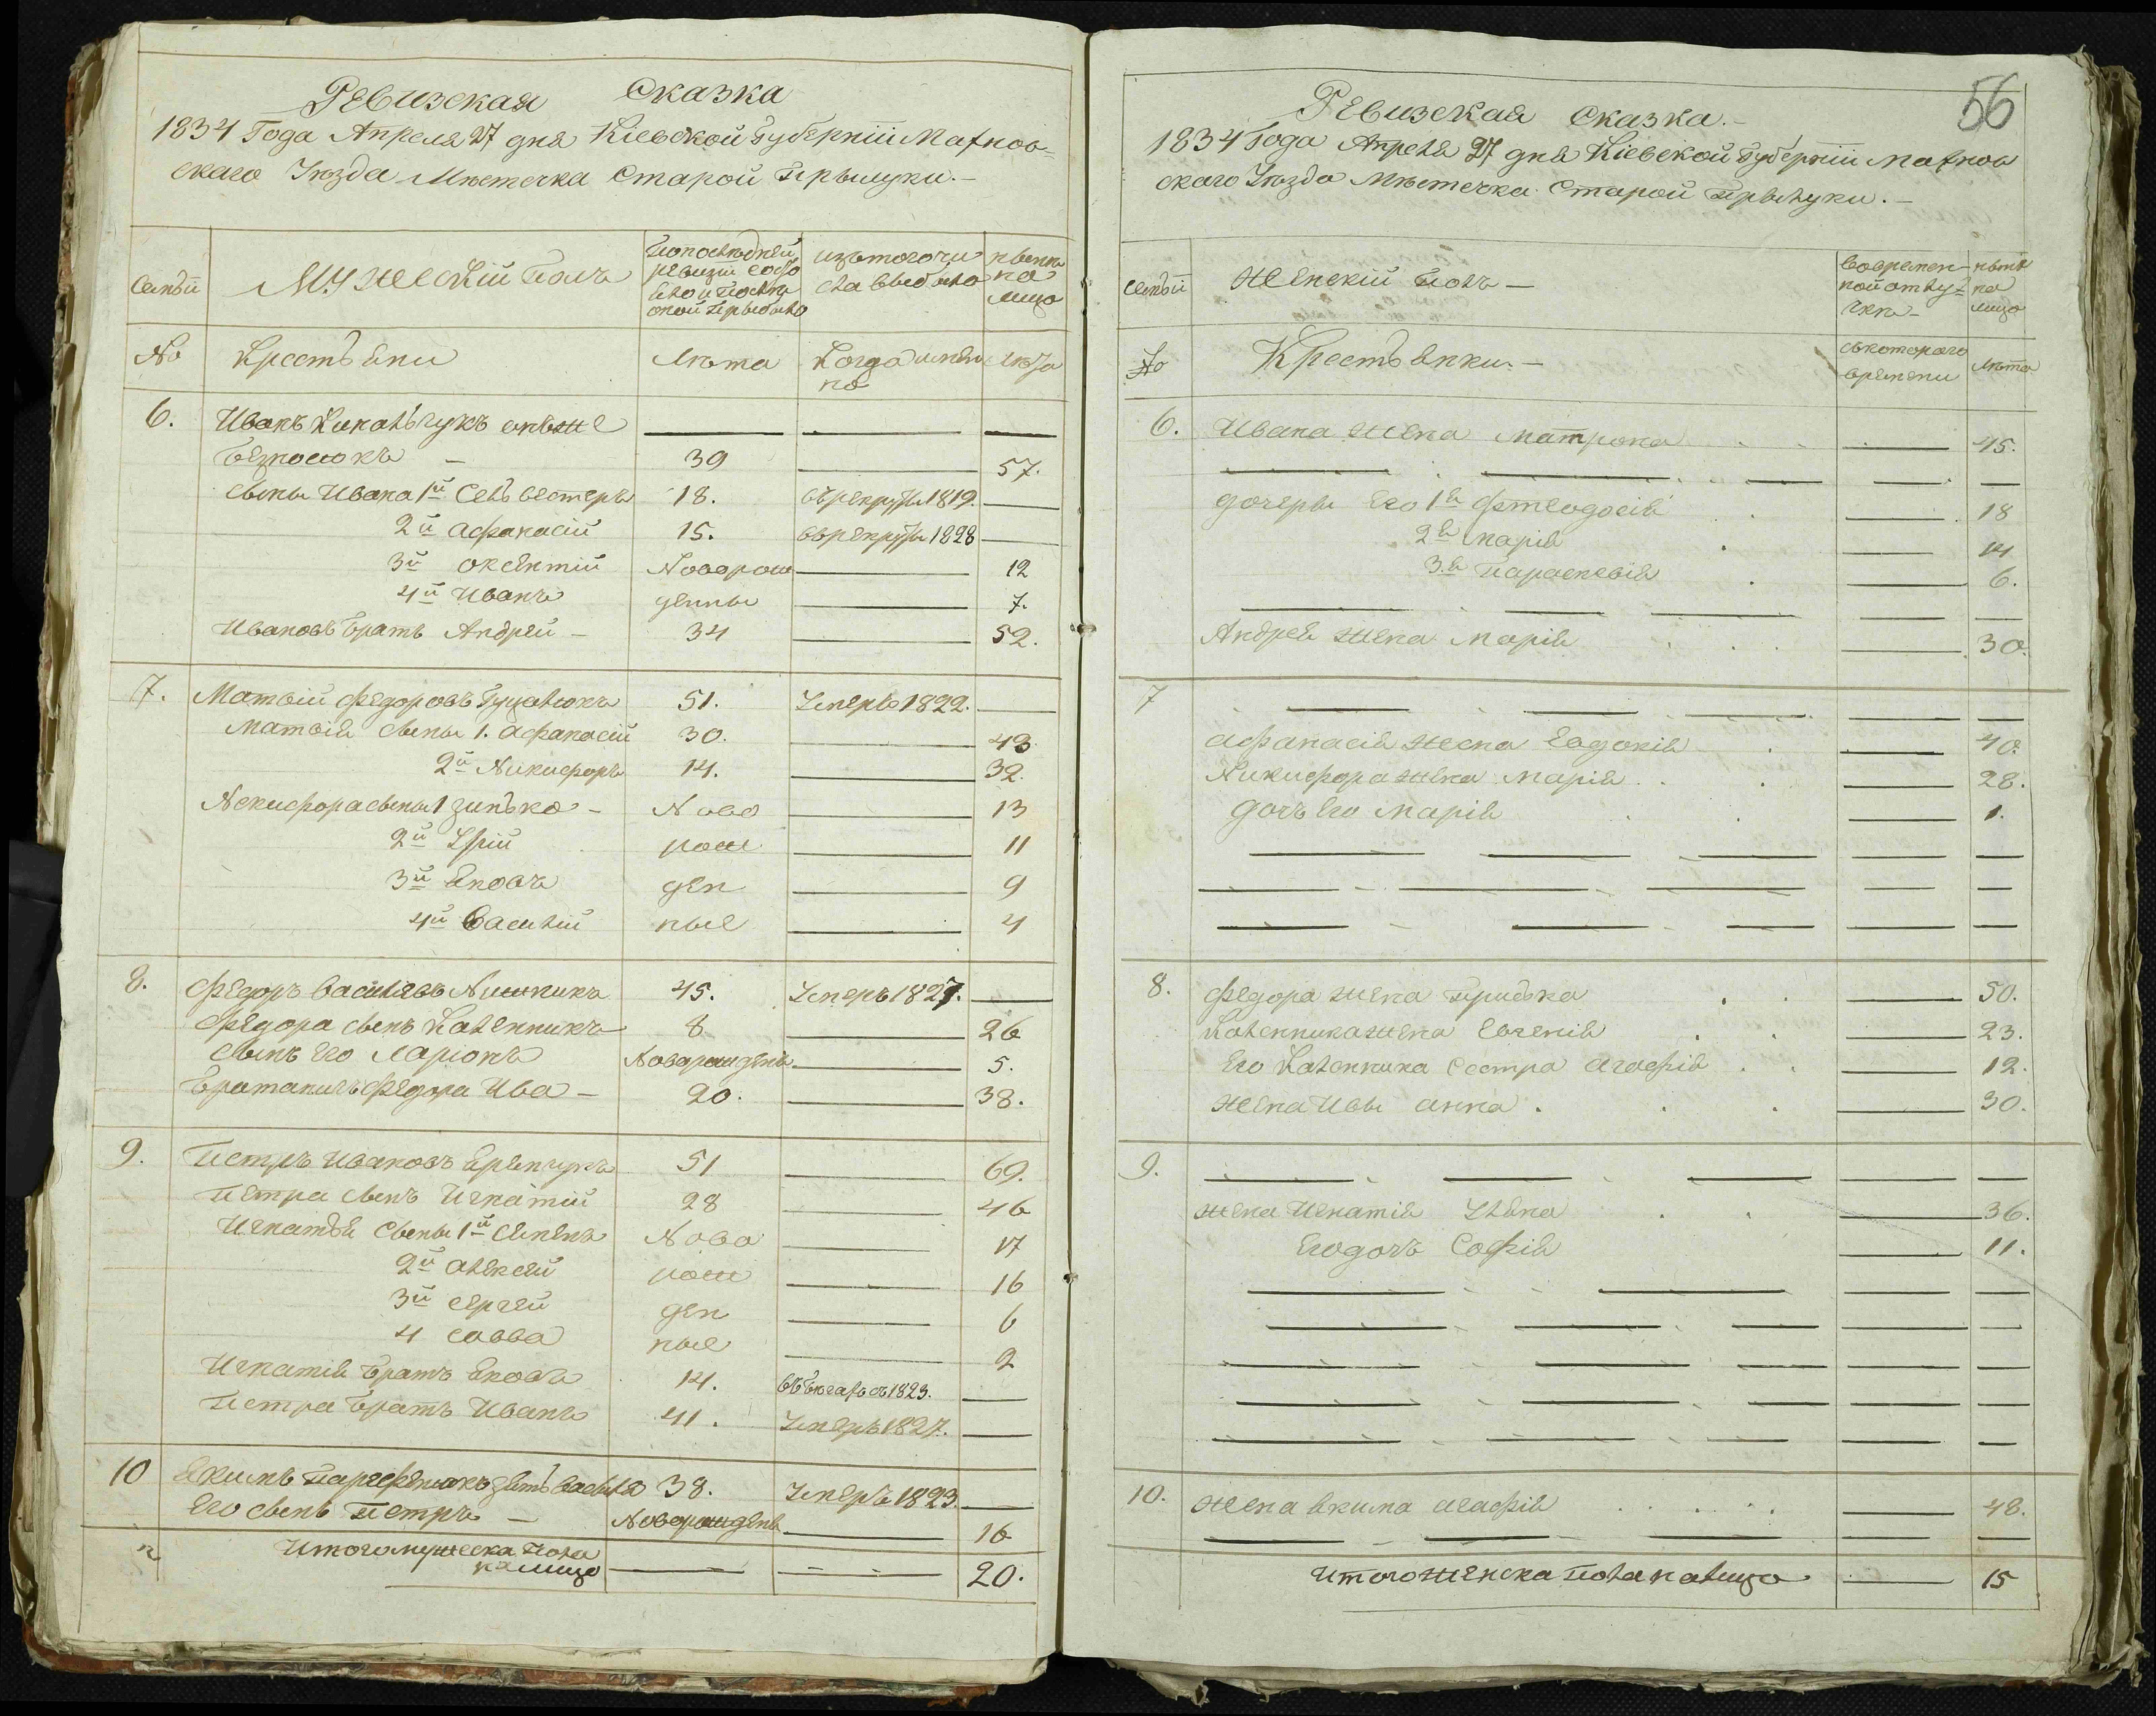 Ревизская Сказка
1834 Года Апреля 27 дня Кіевской Губерніи Махнов-
скаго Уезда Местечка Старой Прылуки.-
семьи Мужескій Полъ По последней ревизіи состояло и после оной прыбыло изъ того числа выбыло ныне на лицо
No Крестьяни лета Когда именно лета
6. Иванъ онъ же
39 57.
сыны Ивана 1й Сельвестеръ 18. въ рекруты 1819.
2й Афанасій 15. в рекруты 1828
3й Оксентій Новорож 12
4й Иванъ денны 7.
Ивановъ братъ Андрей - 34 52.
7. Матвій Федоровъ 51. Умеръ 1822.
Матвія сыны 1. Афанасій 30. 43
2й Никифоръ 14. 32.
Некифора сыны 1 Зинько - Ново 13
2й Юрій рож 11
3й Яковъ ден 9
4й Василій ные 4
8. Федоръ Василевъ 45. Умеръ 1827.
Федора сынъ Каленникъ 8 26
сынъ Его Ларіонъ Новорожденъ 5.
братаничъ Федора Ива - 20. 38.
9. Петръ Ивановъ 51 69.
Петра сынъ Игнатій 28 46
Игнатья сыны 1й Семенъ Ново 17
2й Алексей рож 16
3й Сергей ден 6
4 Савва ные 2
Игнатія братъ Яковъ 14. въ бегахъ съ 1823.
Петра братъ Иванъ 41. Умеръ 1827.
10 Якимъ зять Василя 38. Умеръ 1823.
Его сынъ Петръ - Новорожденъ 16
Итого мужеска пола
на лицо 20.
56
Ревизская Сказка.-
1834 Года Апреля 27 дня Кіевской Губерніи Махнов
скаго Уезда Местечка Старой Прылуки.-
семьи Женскій Полъ - Во временной отлучке - ныне на лицо
No Крестьянки.- съ котораго времени лета
6. Ивана жена Матрона 45.
дочеры Его 1я Фтеодосія 18
2я Марія 14
3.я Параскевія 6.
Андрея жена Марія 30.
7
Афанасія жена Евдокія 40.
Никифора жена Марія 28.
дочь Его Марія 1.
8. Федора жена Приська 50.
Каленника жена Евгенія 23.
Его Каленника сестра Агафія 12.
жена Ивы Анна. 30.
9.
жена Игнатія Уляна 36.
Его дочь Софія 11.
10. жена Якима Агафія 48.
Итого Женска пола на лицо 15